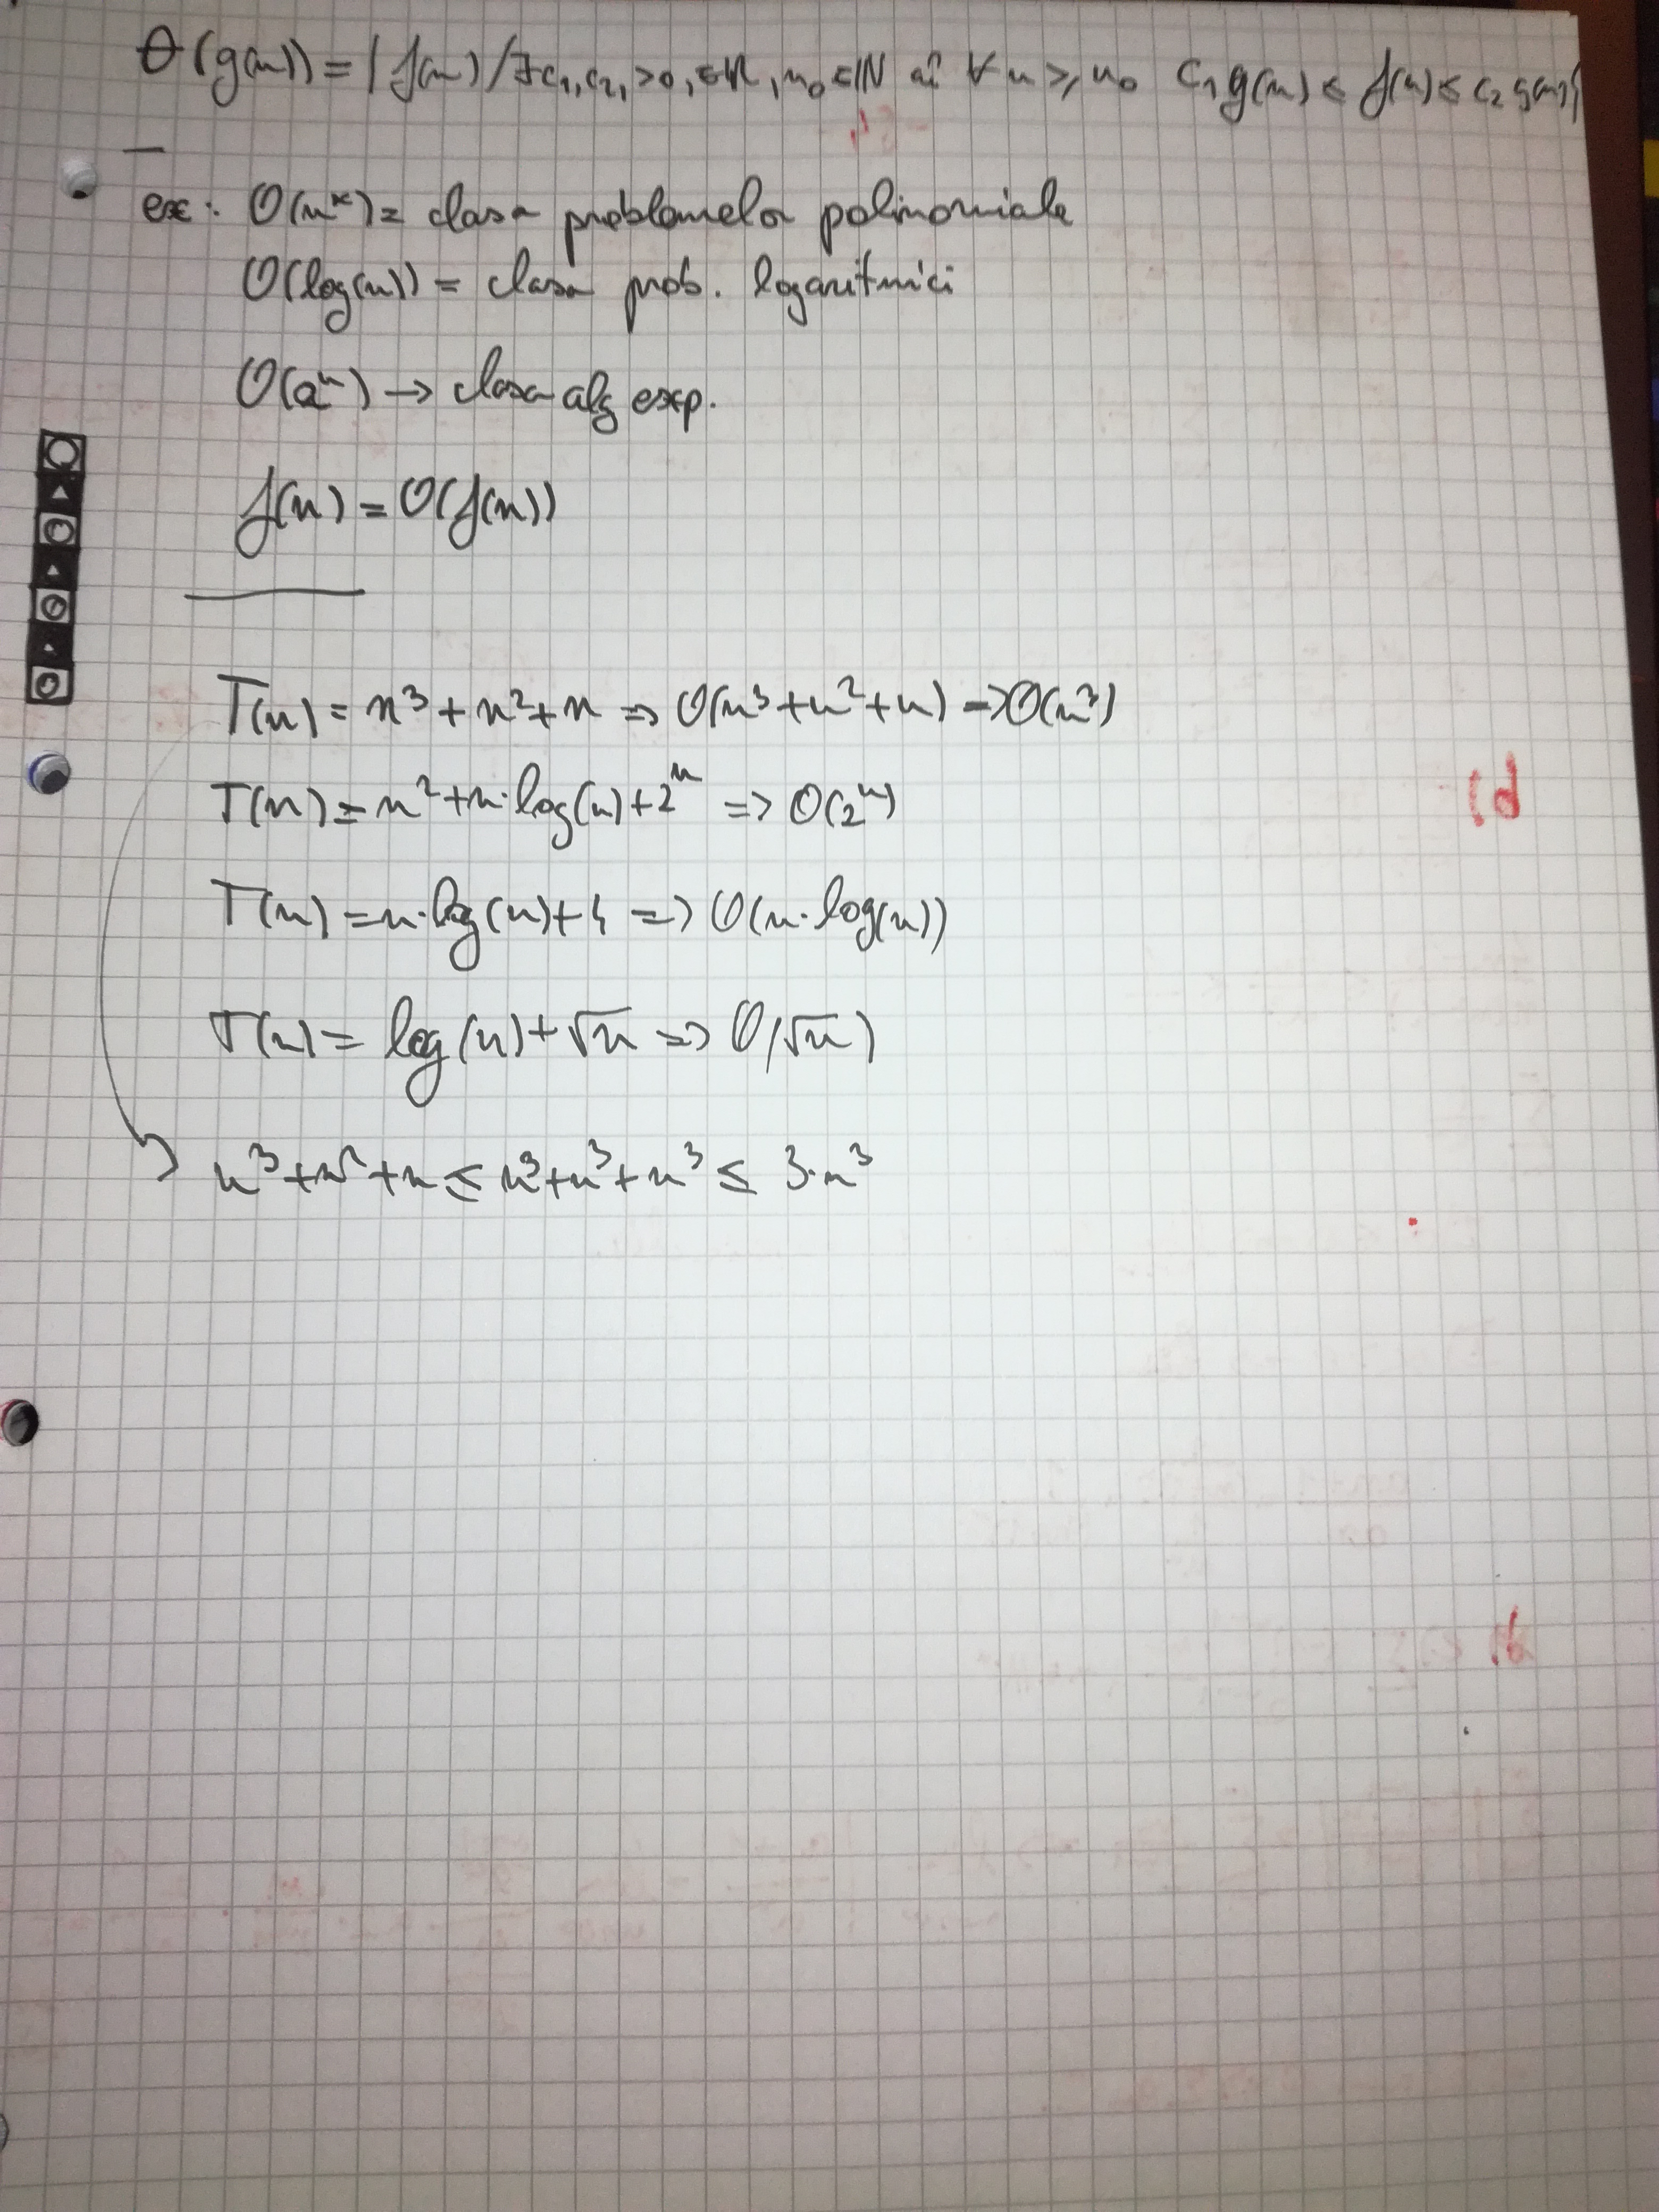 Θ(g(n)) = { f(n) / ∃ c₁, c₂, >0, ∈ ℝ, n₀ ∈ ℕ aî ∀ n ≥ n₀ c₁ g(n) ≤ f(n) ≤ c₂ g(n) }
ex: O(nᵏ) = clasa problemelor polinomiale
O(log(n)) = clasa prob. logaritmici
O(2ⁿ) → clasa alg exp.
f(n) = O(f(n))
T(n) = n³ + n² + n => O(n³ + n² + n) => O(n³)
T(n) = n² + n·log(n) + 2ⁿ => O(2ⁿ)
T(n) = n·log(n) + 4 => O(n·log(n))
T(n) = log(n) + √n => O(√n)
n³ + n² + n ≤ n³ + n³ + n³ ≤ 3·n³